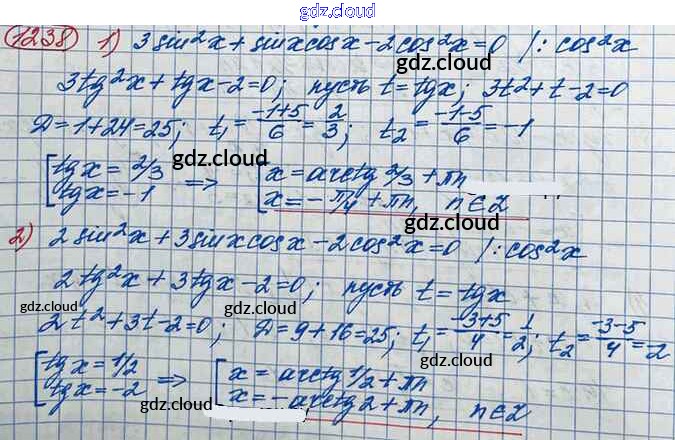 gdz.cloud
1238 1) 3 sin²x + sinxcosx - 2cos²x = 0 /: cos²x
gdz.cloud
3tg²x + tgx - 2 = 0; пусть t = tgx; 3t² + t - 2 = 0
gdz.cloud
D = 1 + 24 = 25; t₁ = (-1+5)/6 = 2/3; t₂ = (-1-5)/6 = -1
gdz.cloud
[tgx = 2/3 => [x = arctg 2/3 + πn
[tgx = -1 [x = -π/4 + πn, n∈Z
gdz.cloud
2) 2 sin²x + 3 sinxcosx - 2cos²x = 0 /: cos²x
gdz.cloud
2tg²x + 3tgx - 2 = 0; пусть t = tgx
gdz.cloud gdz.cloud
2t² + 3t - 2 = 0; D = 9 + 16 = 25; t₁ = (-3+5)/4 = 1/2; t₂ = (-3-5)/4 = -2
gdz.cloud
[tgx = 1/2 => [x = arctg 1/2 + πn
[tgx = -2 [x = -arctg2 + πn, n∈Z
gdz.cloud gdz.cloud